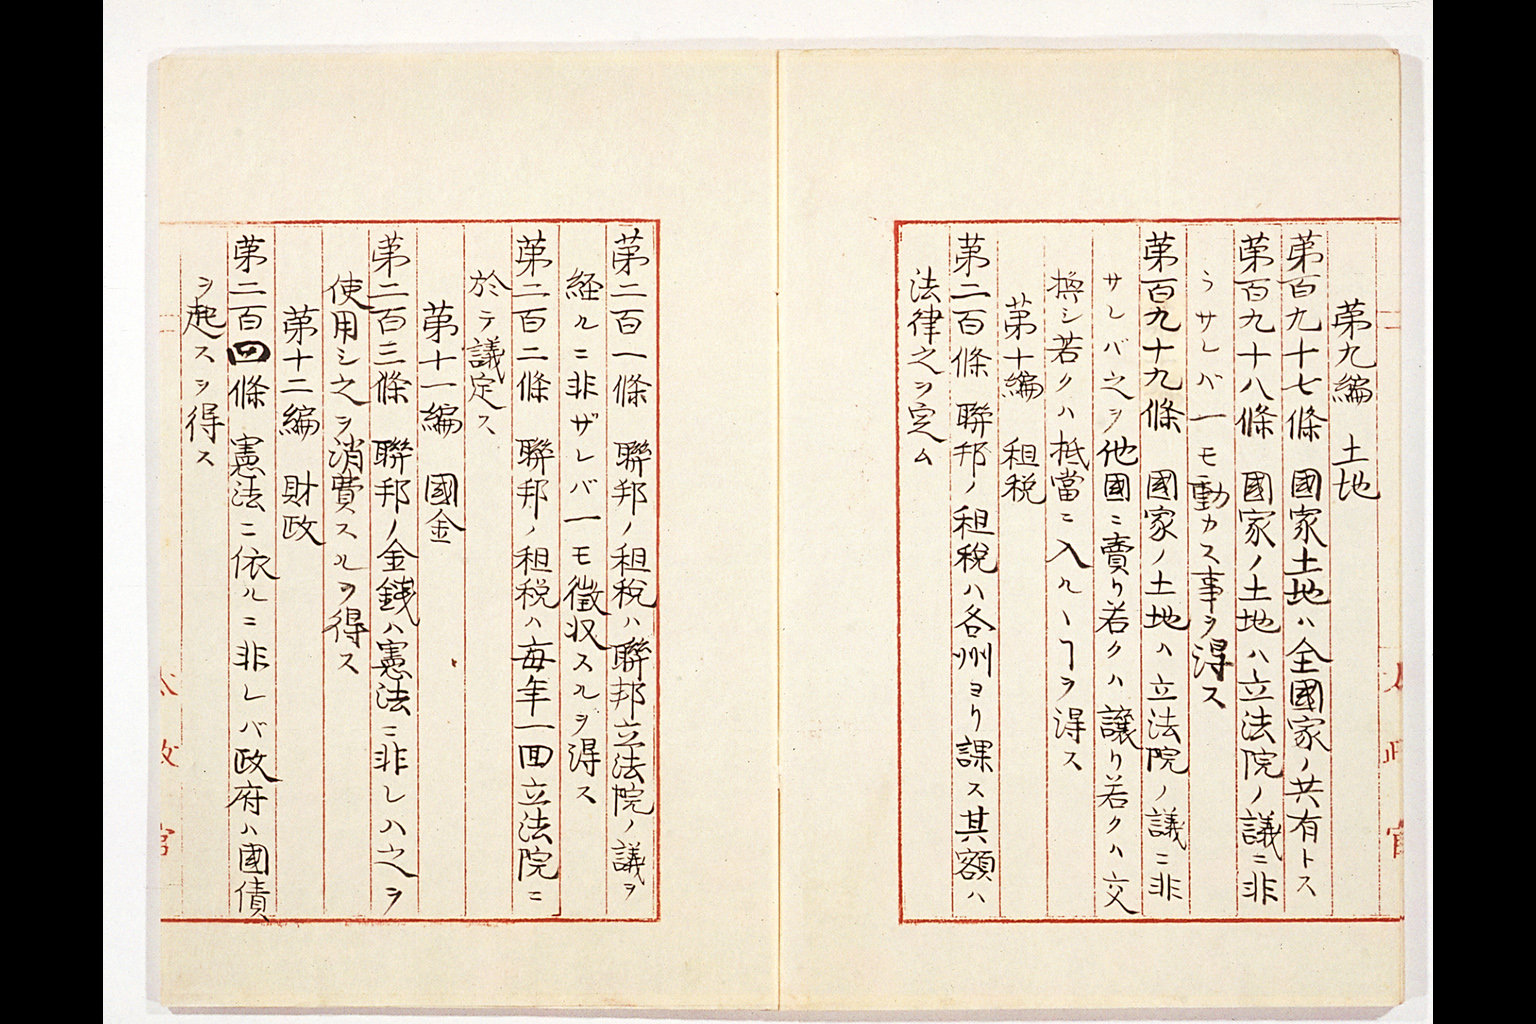 第九編　土地
第百九十七條　國家土地ハ全國家ノ共有トス
第百九十八條　國家ノ土地ハ立法院ノ議ニ非
ラサレバ一モ動カス事ヲ得ス
第百九十九條　國家ノ土地ハ立法院ノ議ニ非
サレバ之ヲ他國ニ賣リ若クハ讓リ若クハ交
換シ若クハ抵當ニ入ルヽヿヲ得ス
第十編　租税
第二百條　聯邦ノ租税ハ各州ヨリ課ス其額ハ
法律之ヲ定ム
第二百一條　聯邦ノ租税ハ聯邦立法院ノ議ヲ
経ルニ非ザレバ一モ徴収スルヲ得ス
第二百二條　聯邦ノ租税ハ毎年一回立法院ニ
於テ議定ス
第十一編　國金
第二百三條　聯邦ノ金錢ハ憲法ニ非レハ之ヲ
使用シ之ヲ消費スルヲ得ス
第十二編　財政
第二百四條　憲法ニ依ルニ非レバ政府ハ國債
ヲ起スヲ得ス
太政官